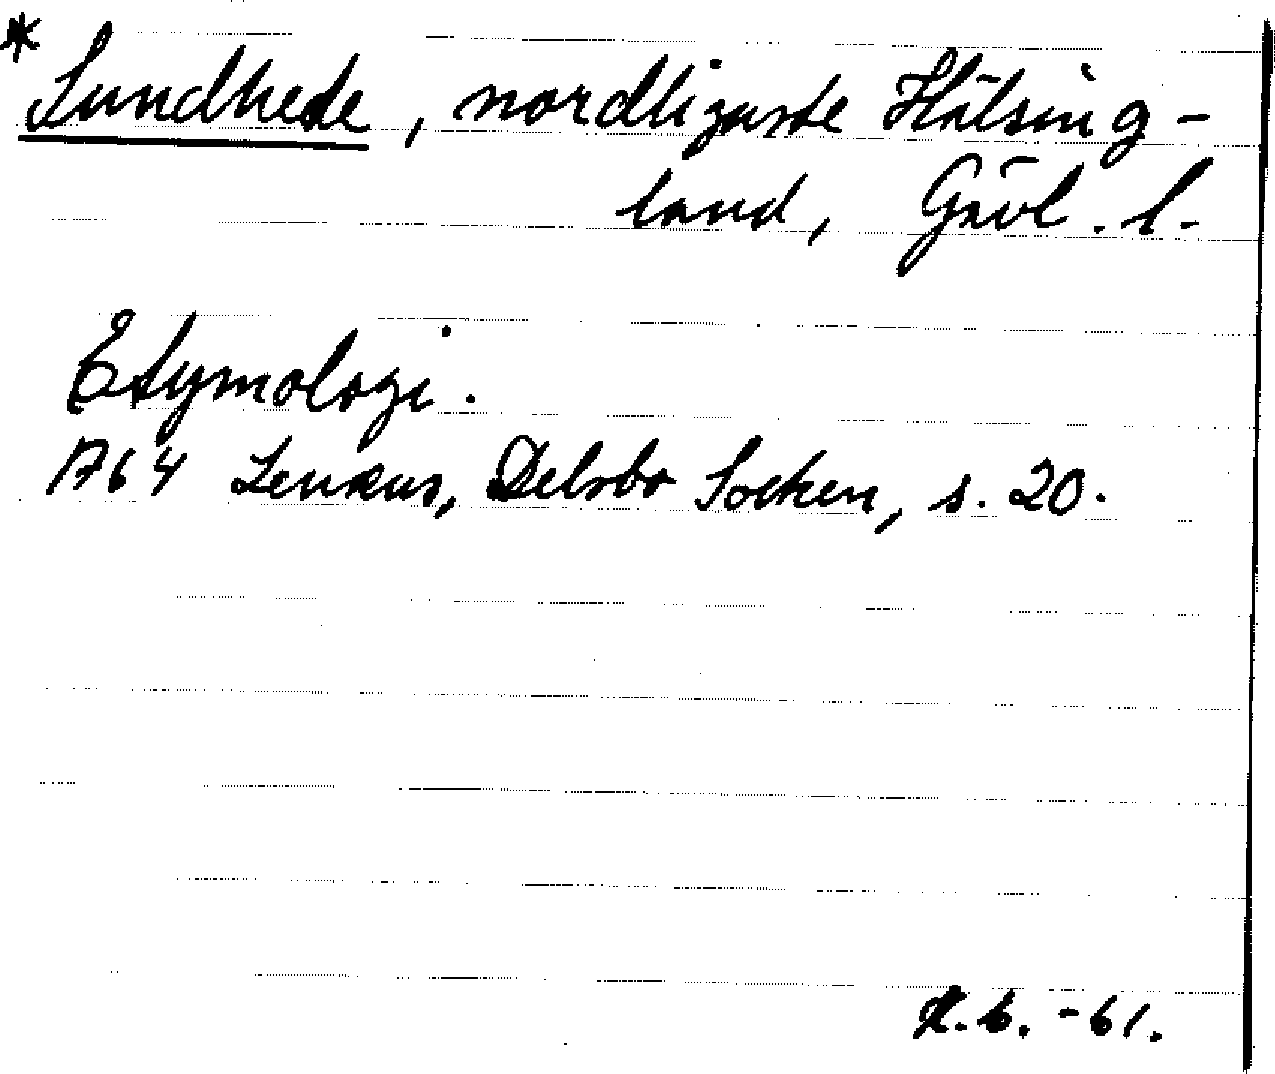 * Sundhede, nordligaste Hälsing-
land, Gävl. l.
Etymologi.
1764 Lenæus, Delsbo Socken, s. 20.
-61.